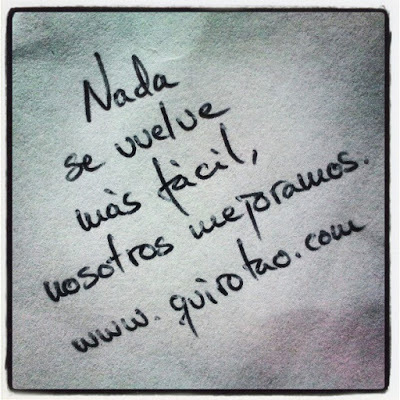 Nada
se vuelve
más fácil,
nosotros mejoramos.
www.quirotao.com